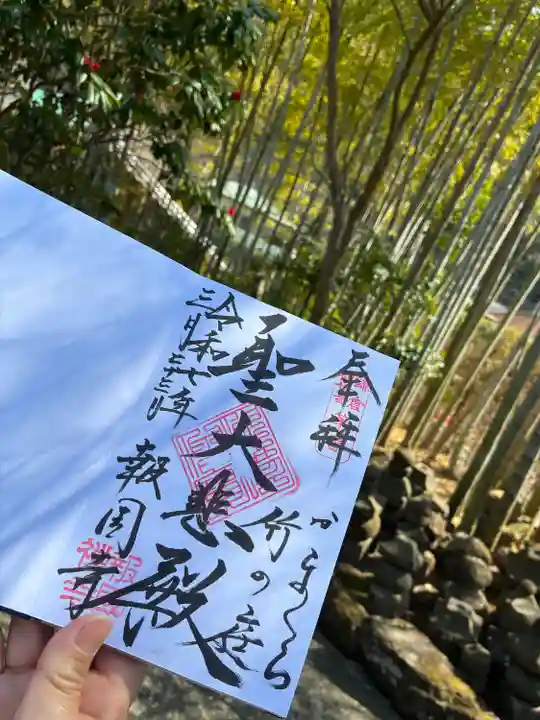 奉拝
かまくら
竹の庭
聖大悲殿
令和七年
三月二十三日
報国寺